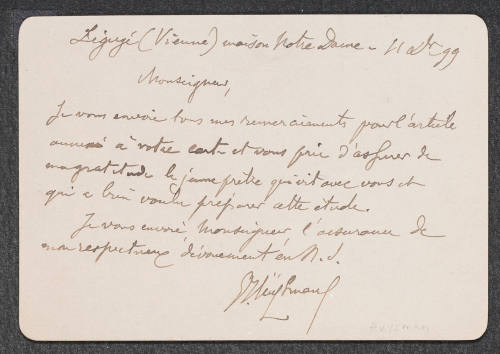 Ligugé (Vienne) maison Notre Dame - 11 Dbr 99
Monseigneur,
Je vous envoie tous mes remerciements pour l'article
annexé à votre carte et vous prie d'assurer de
ma gratitude le jeune prêtre qui vit avec vous et
qui a bien voulu préparer cette étude.
Je vous envoie Monseigneur l'assurance de
mon respectueux dévouement en N. S.
Huysmans